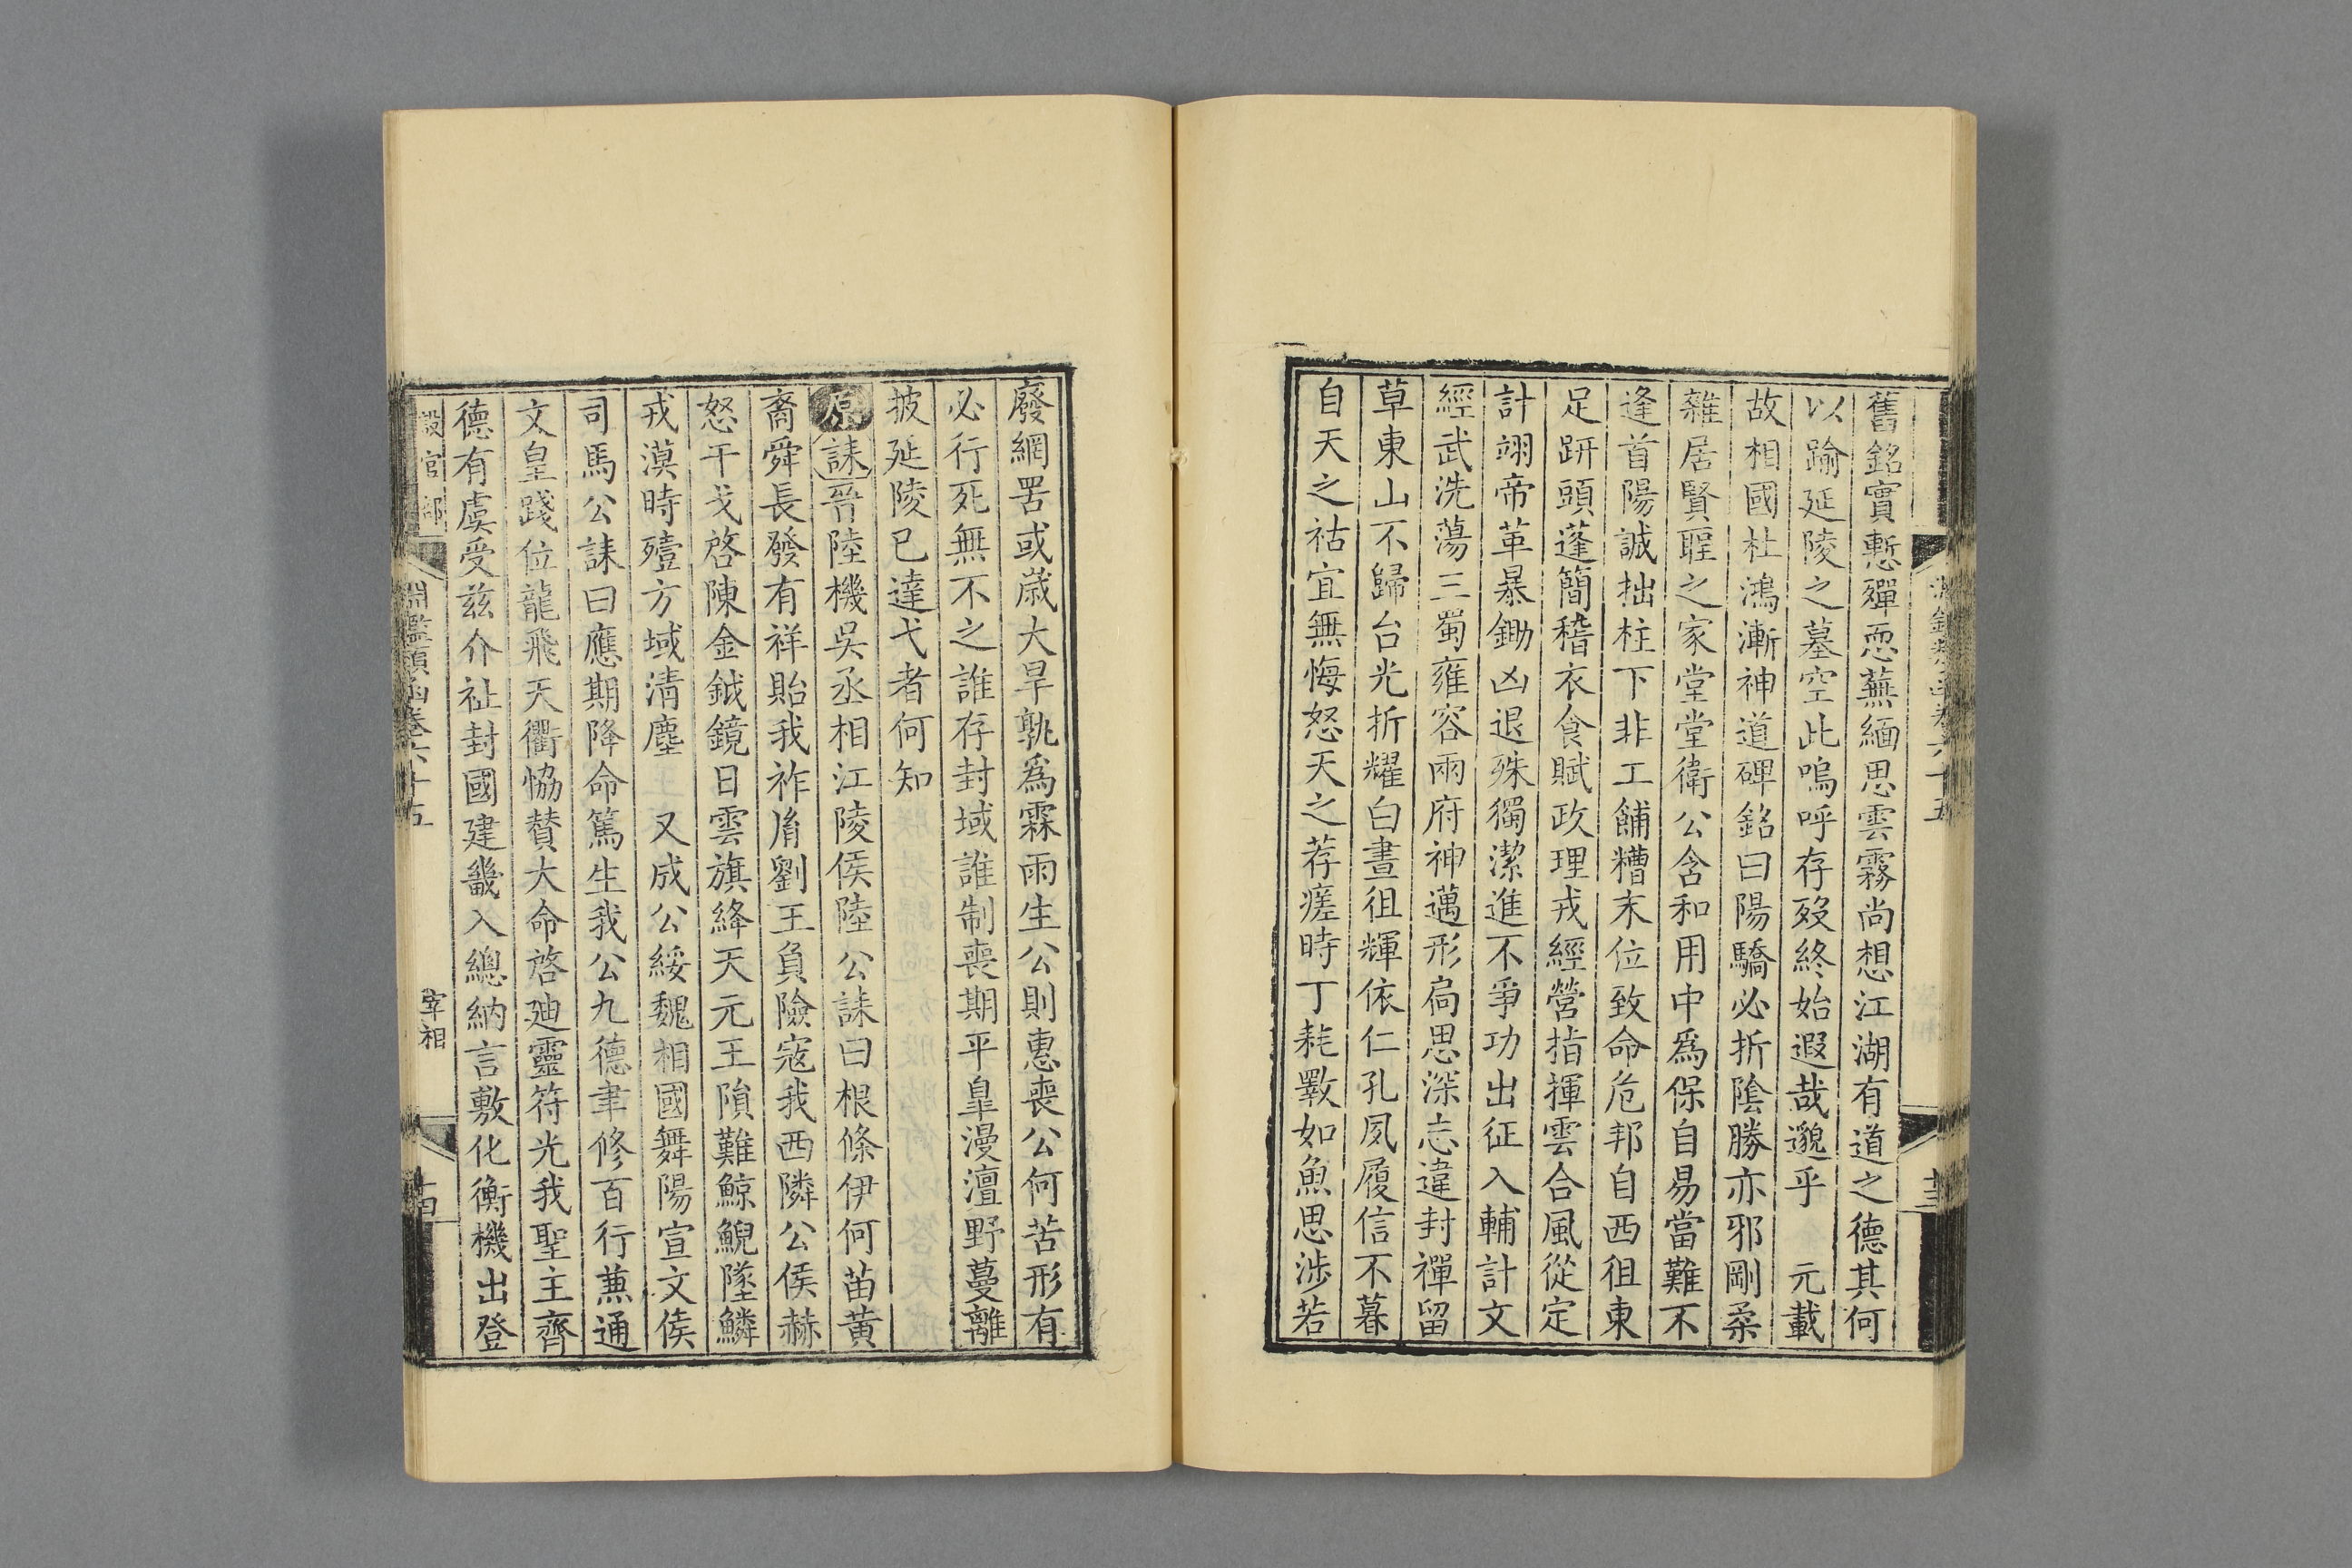 舊銘實慙殫恧蕪緬思雲霧尚想江湖有道之德其何
以踰延陵之墓空此嗚呼存歿終始遐哉邈乎 元載
故相國杜鴻漸神道碑銘曰陽驕必折陰勝亦邪剛柔
雜居賢聖之家堂堂衛公含和用中爲保自易當難不
逢首陽誠拙柱下非工餔糟末位致命危邦自西徂東
足趼頭蓬簡稽衣食賦政理戎經營指揮雲合風從定
計翊帝革暴鋤凶退殊獨潔進不爭功出征入輔計文
經武洗蕩三蜀雍容兩府神邁形扃思深志違封禪留
草東山不歸台光折耀白晝徂輝依仁孔夙履信不暮
自天之祜宜無悔怒天之荐瘥時丁耗斁如魚思涉若
廢網罟或歲大旱孰爲霖雨生公則惠喪公何苦形有
必行死無不之誰存封域誰制喪期平皐漫澶野蔓離
披延陵已達弋者何知
原誄晉陸機吳丞相江陵侯陸公誄曰根條伊何苗黃
裔舜長發有祥貽我祚胤劉王負險寇我西隣公侯赫
怒干戈啓陳金鉞鏡日雲旗絳天元王隕難鯨鯢墜鱗
戎漠時殪方域清塵 又成公綏魏相國舞陽宣文侯
司馬公誄曰應期降命篤生我公九德聿修百行兼通
文皇踐位龍飛天衢恊贊大命啓廸靈符光我聖主齊
德有虞受茲介祉封國建畿入總納言敷化衡機出登
設官部 淵鑑類函卷六十五 宰相 十四